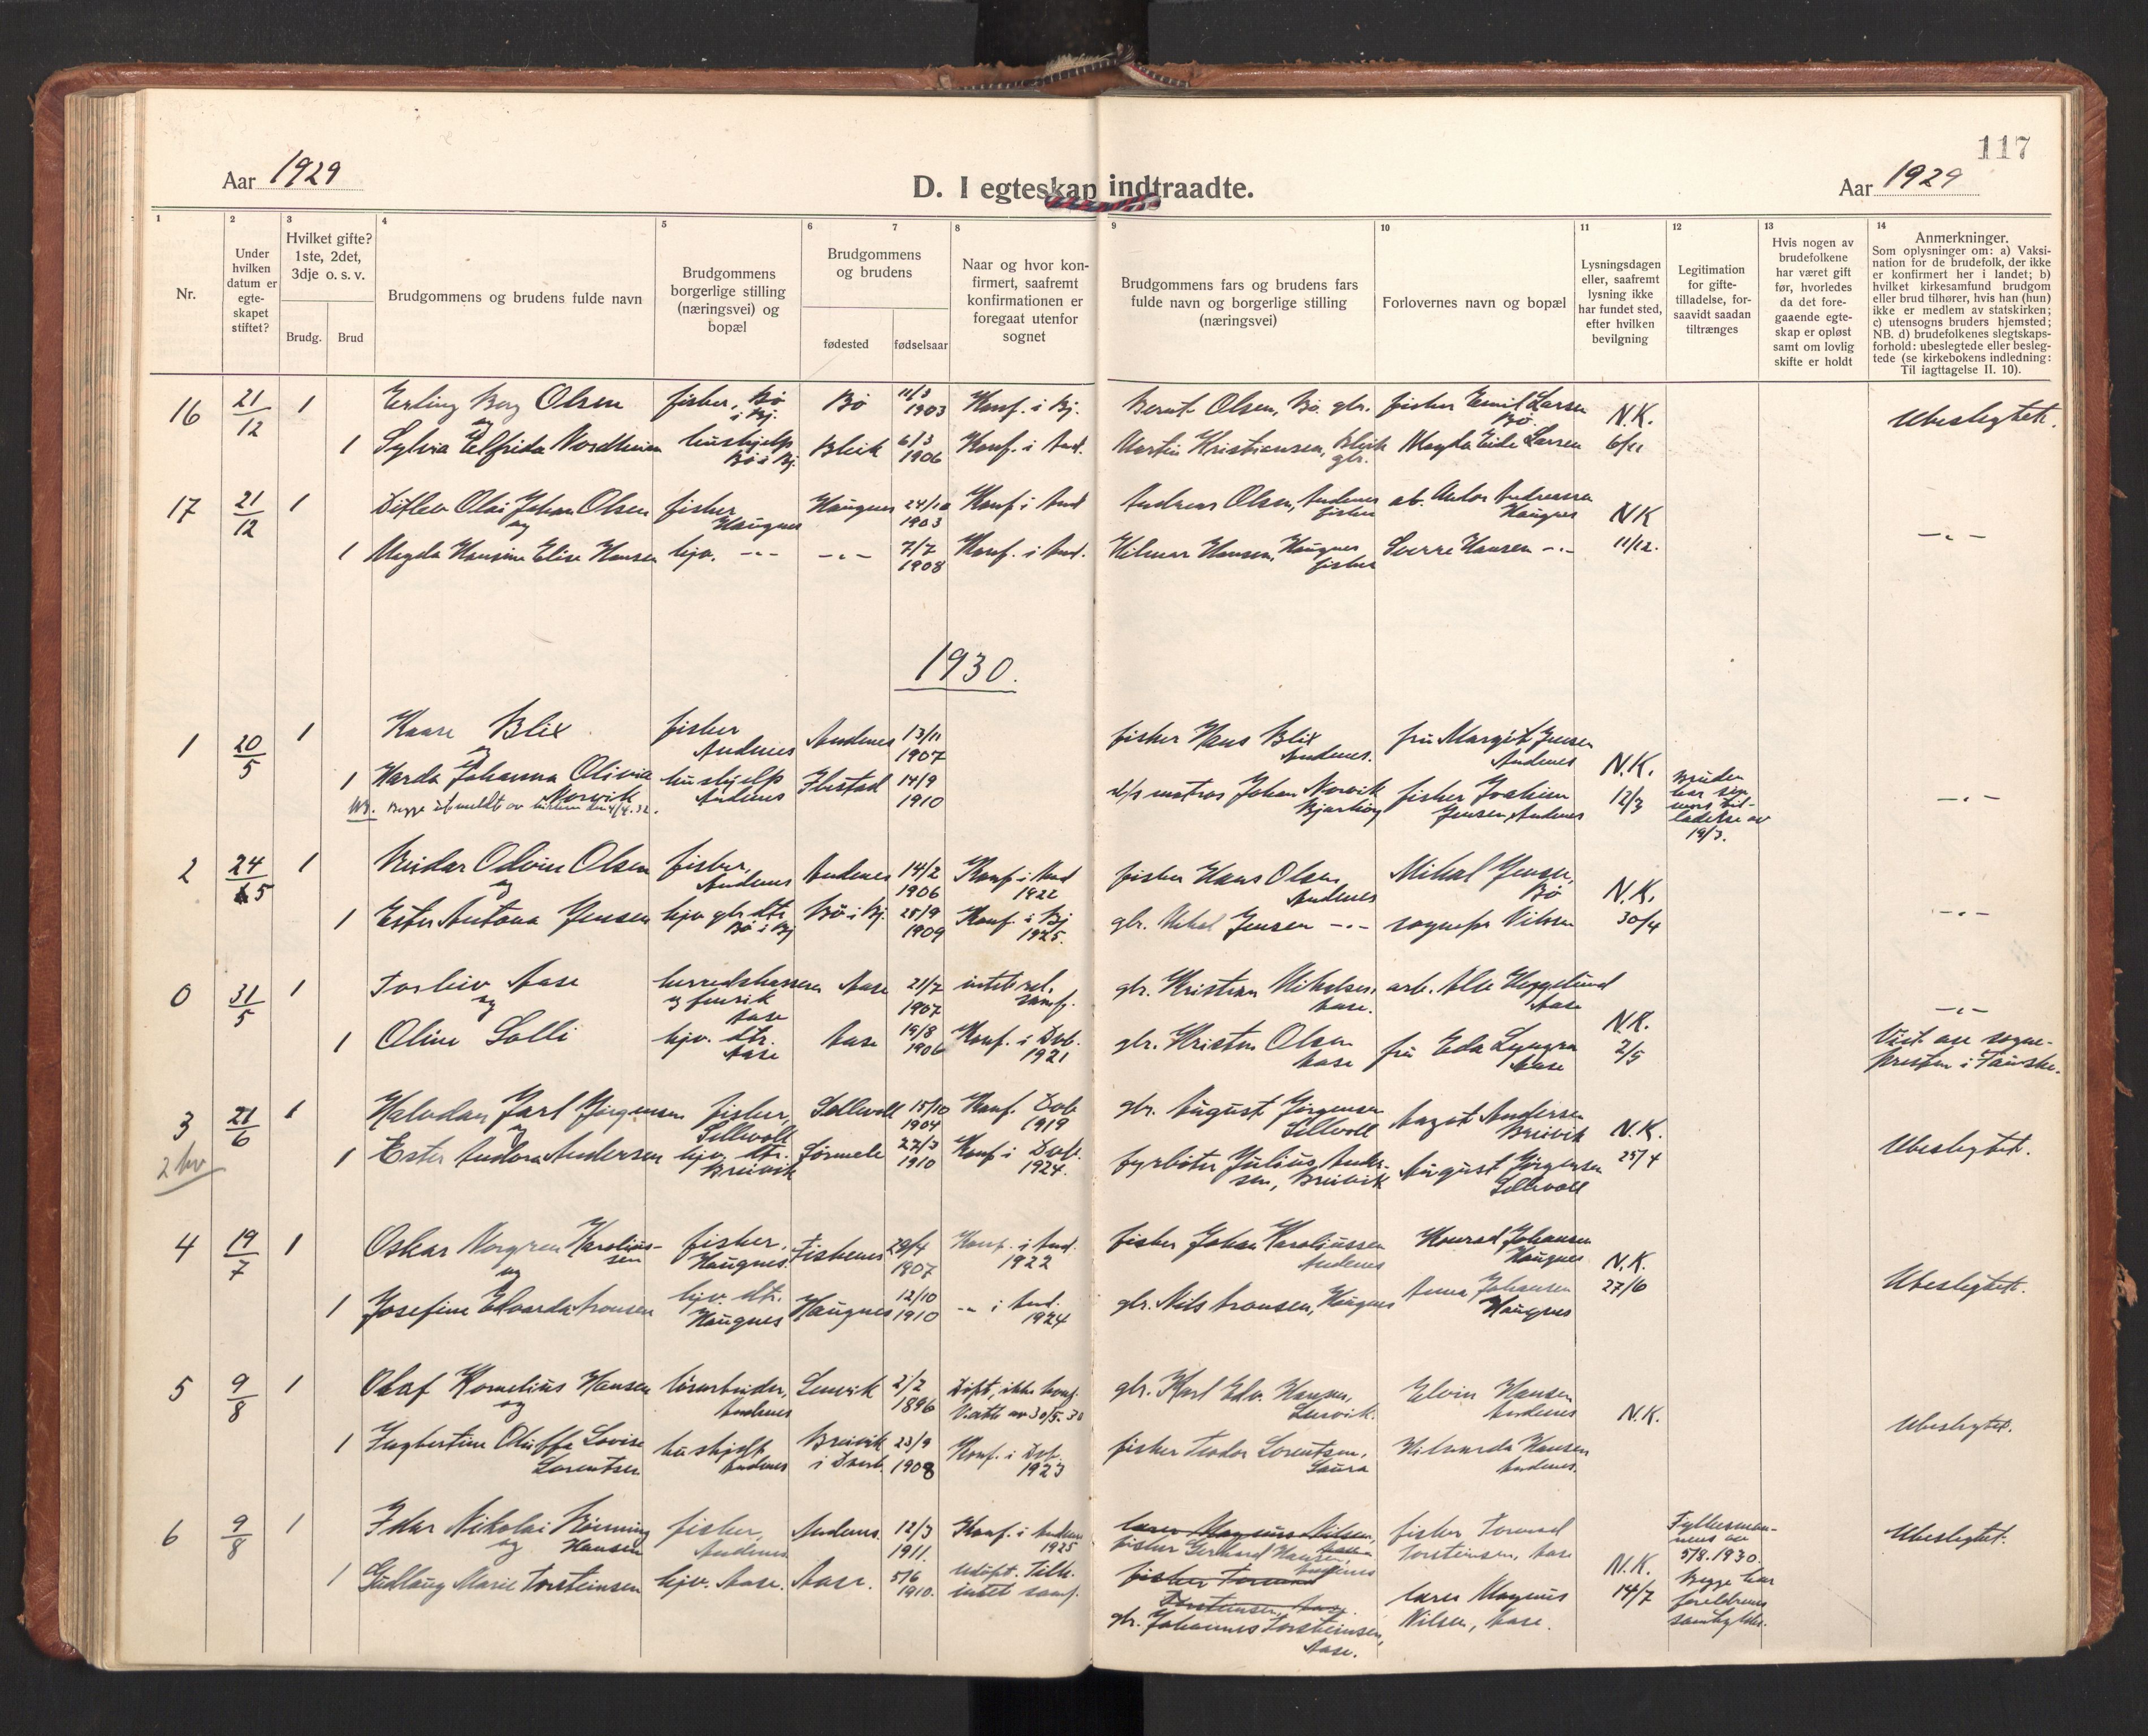 117
Aar 1929
D. I egteskap indtraadte.
Aar 1929
1
2
3
4
5
6
7
8
9
10
11
12
13
14
Nr.
Under
hvilken
datum er
egte-
skapet
stiftet?
Hvilket gifte?
1ste, 2det,
3dje o. s. v.
Brudg.
Brud
Brudgommens og brudens fulde navn
Brudgommens
borgerlige stilling
(næringsvei) og
bopæl
Brudgommens
og brudens
fødested
fødselsaar
Naar og hvor kon-
firmert, saafremt
konfirmationen er
foregaat utenfor
sognet
Brudgommens fars og brudens fars
fulde navn og borgerlige stilling
(næringsvei)
Forlovernes navn og bopæl
Lysningsdagen
eller, saafremt
lysning ikke
har fundet sted,
efter hvilken
bevilgning
Legitimation
for gifte-
tilladelse, for-
saavidt saadan
tiltrænges
Hvis nogen av
brudefolkene
har været gift
før, hvorledes
da det fore-
gaaende egte-
skap er opløst
samt om lovlig
skifte er holdt
Anmerkninger.
Som oplysninger om: a) Vaksi-
nation for de brudefolk, der ikke
er konfirmert her i landet; b)
hvilket kirkesamfund brudgom
eller brud tilhører, hvis han (hun)
ikke er medlem av statskirken;
c) utensogns bruders hjemsted;
NB. d) brudefolkenes slegtskaps-
forhold: ubeslegtede eller besleg-
tede (se kirkebokens indledning:
Til iagttagelse II. 10).
16 21/12 1 Erling Berg Olsen fisher, Bø i Bj. Bø 11/3 1903 Konf. i Bj. Bernt Olsen, Bø. gbr. fisker Emil Larsen Bø N.K. Ubeslegtet.
og
1 Sylvia Elfrida Nordheim hushjelp Bø i Bj. Bleik 6/3 1906 Konf. i And. Martin Kristiansen, Bleik gbr. Magda Eide Larsen 6/11
17 21/12 1 Ditlev Olai Johan Olsen fisker Haugnes Haugnes 24/10 1903 Konf. i And Andreas Olsen, Andenes fisker arb. Anton Andreassen Haugnes NK -"-
og
1 Magda Hansine Elise Hansen hjv. -"- -"- 7/7 1908 Konf. i And. Hilmar Hansen, Haugnes fisker Sverre Hansen -"- 11/12.
1930.
1 20/5 1 Kaare Blix fisker Andenes Andenes 13/11 1907 fisker Hans Blix Andenes. fru Margit Jensen Andenes N.K.
og
1 Harda Johanna Olivia Norvik hushjelp Andenes Ibestad 14/9 1910 matros Johan Norvik Bjarkøy fisker Joakim Jensen, Andenes 12/3 Bruden har sin mors til-
ladelse av
19/3. -"-
NB. Begge utmeldt av kirken den 4/4.32.
2 24/5 1 Reidar Odvin Olsen fisker, Andenes Andenes 14/2 1906 Konf. i And 1922 fisker Hans Olsen Andenes Mikal Jensen, Bø N.K.
og
1 Ester Antona Jensen hjv gbr. dtr. Bø i Bj Bø i Bj. 25/9 1909 Konf. i Bj 1925. gbr. Mikal Jensen -"- sognepr Nilsen 30/4 -"-
0 31/5 1 Torleiv Aase herredskasserer og fenrik Aase Aase 21/7 1907 intet rel. samf. gbr. Kristian Mikalsen, Aase. arb. Alb Heggelund Aase N.K. -"-
og
1 Oline Solli hjv. dtr. Aase Aase 19/8 1906 Konf. i Dvb. 1921 gbr. Kristen Olsen Aase fru Eda Lyngra Aase 2/5 Viet av sogne-
presten i Fauske.
3 21/6 1 Halvdan Jarl Jørgensen fisker, Sellevoll Sellevoll 15/10 1904 Konf. Dvb 1919 gbr. August Jørgensen Sellevoll Aagot Andersen Breivik N.K. Ubeslegtet.
og
2 hv
1 Ester Andora Andersen hjv. dtr. Breivik 22/3 1910 Konf i Dvb. 1924. fyrbøter Julius Ander-
sen, Breivik August Jørgensen Sellevoll 25/4
4 19/7 1 Oskar Norgren Karolius-
sen fisker, Haugnes. Fiskenes 29/4 1907 Konf. i And. 1922 fisker Johan Karoliussen Andenes Konrad Johansen Haugnes N.K.
og
1 Josefine Edvarda Aronsen hjv. dtr. Haugnes Haugnes 12/10 1910 -"- i And. 1924 gbr. Nils Aronsen, Haugnes Anna Johansen Haugnes 27/6 Ubeslegtet.
5 9/8 1 Olaf Kornelius Hansen løsarbeider, Andenes Lenvik 2/2 1896 Døpt, ikke konf. av 30/5.30 gbr. Karl Edv. Hansen, Lenvik. Elvin Hansen Andenes N.K. Ubeslegtet.
og
1 Ingbertine Oluffa Lovise Lorentsen hushjelp Andenes Breivik i Dverb. 23/9 1908 Konf. i Dvb. 1923 fisker Teodor Lorentsen, Saura Hilvarda Hansen Andenes.
6 9/8 1 Idar Nikolai Rønning Hansen fisker, Andenes Andenes. 12/3 1911. Konf. i Andenes 1925 lærer Magnus Nilsen, Aase fisker Gerhard Hansen, Andenes fisker Tormod Torsteinsen, Aase N.K. Fylkesman-
nens av
5/8.1930. Ubeslegtet.
og
1 Gudlaug Marie Torsteinsen hjv. Aase. Aase. 5/6 1910. Udøpt. Tilh. intet samf. fisker Tormod Torsteinsen, Aase. gbr. Johannes Torsteinsen, Aase. lærer Magnus Nilsen, Aase. 14/7 Begge har
foreldrenes
samtykke.